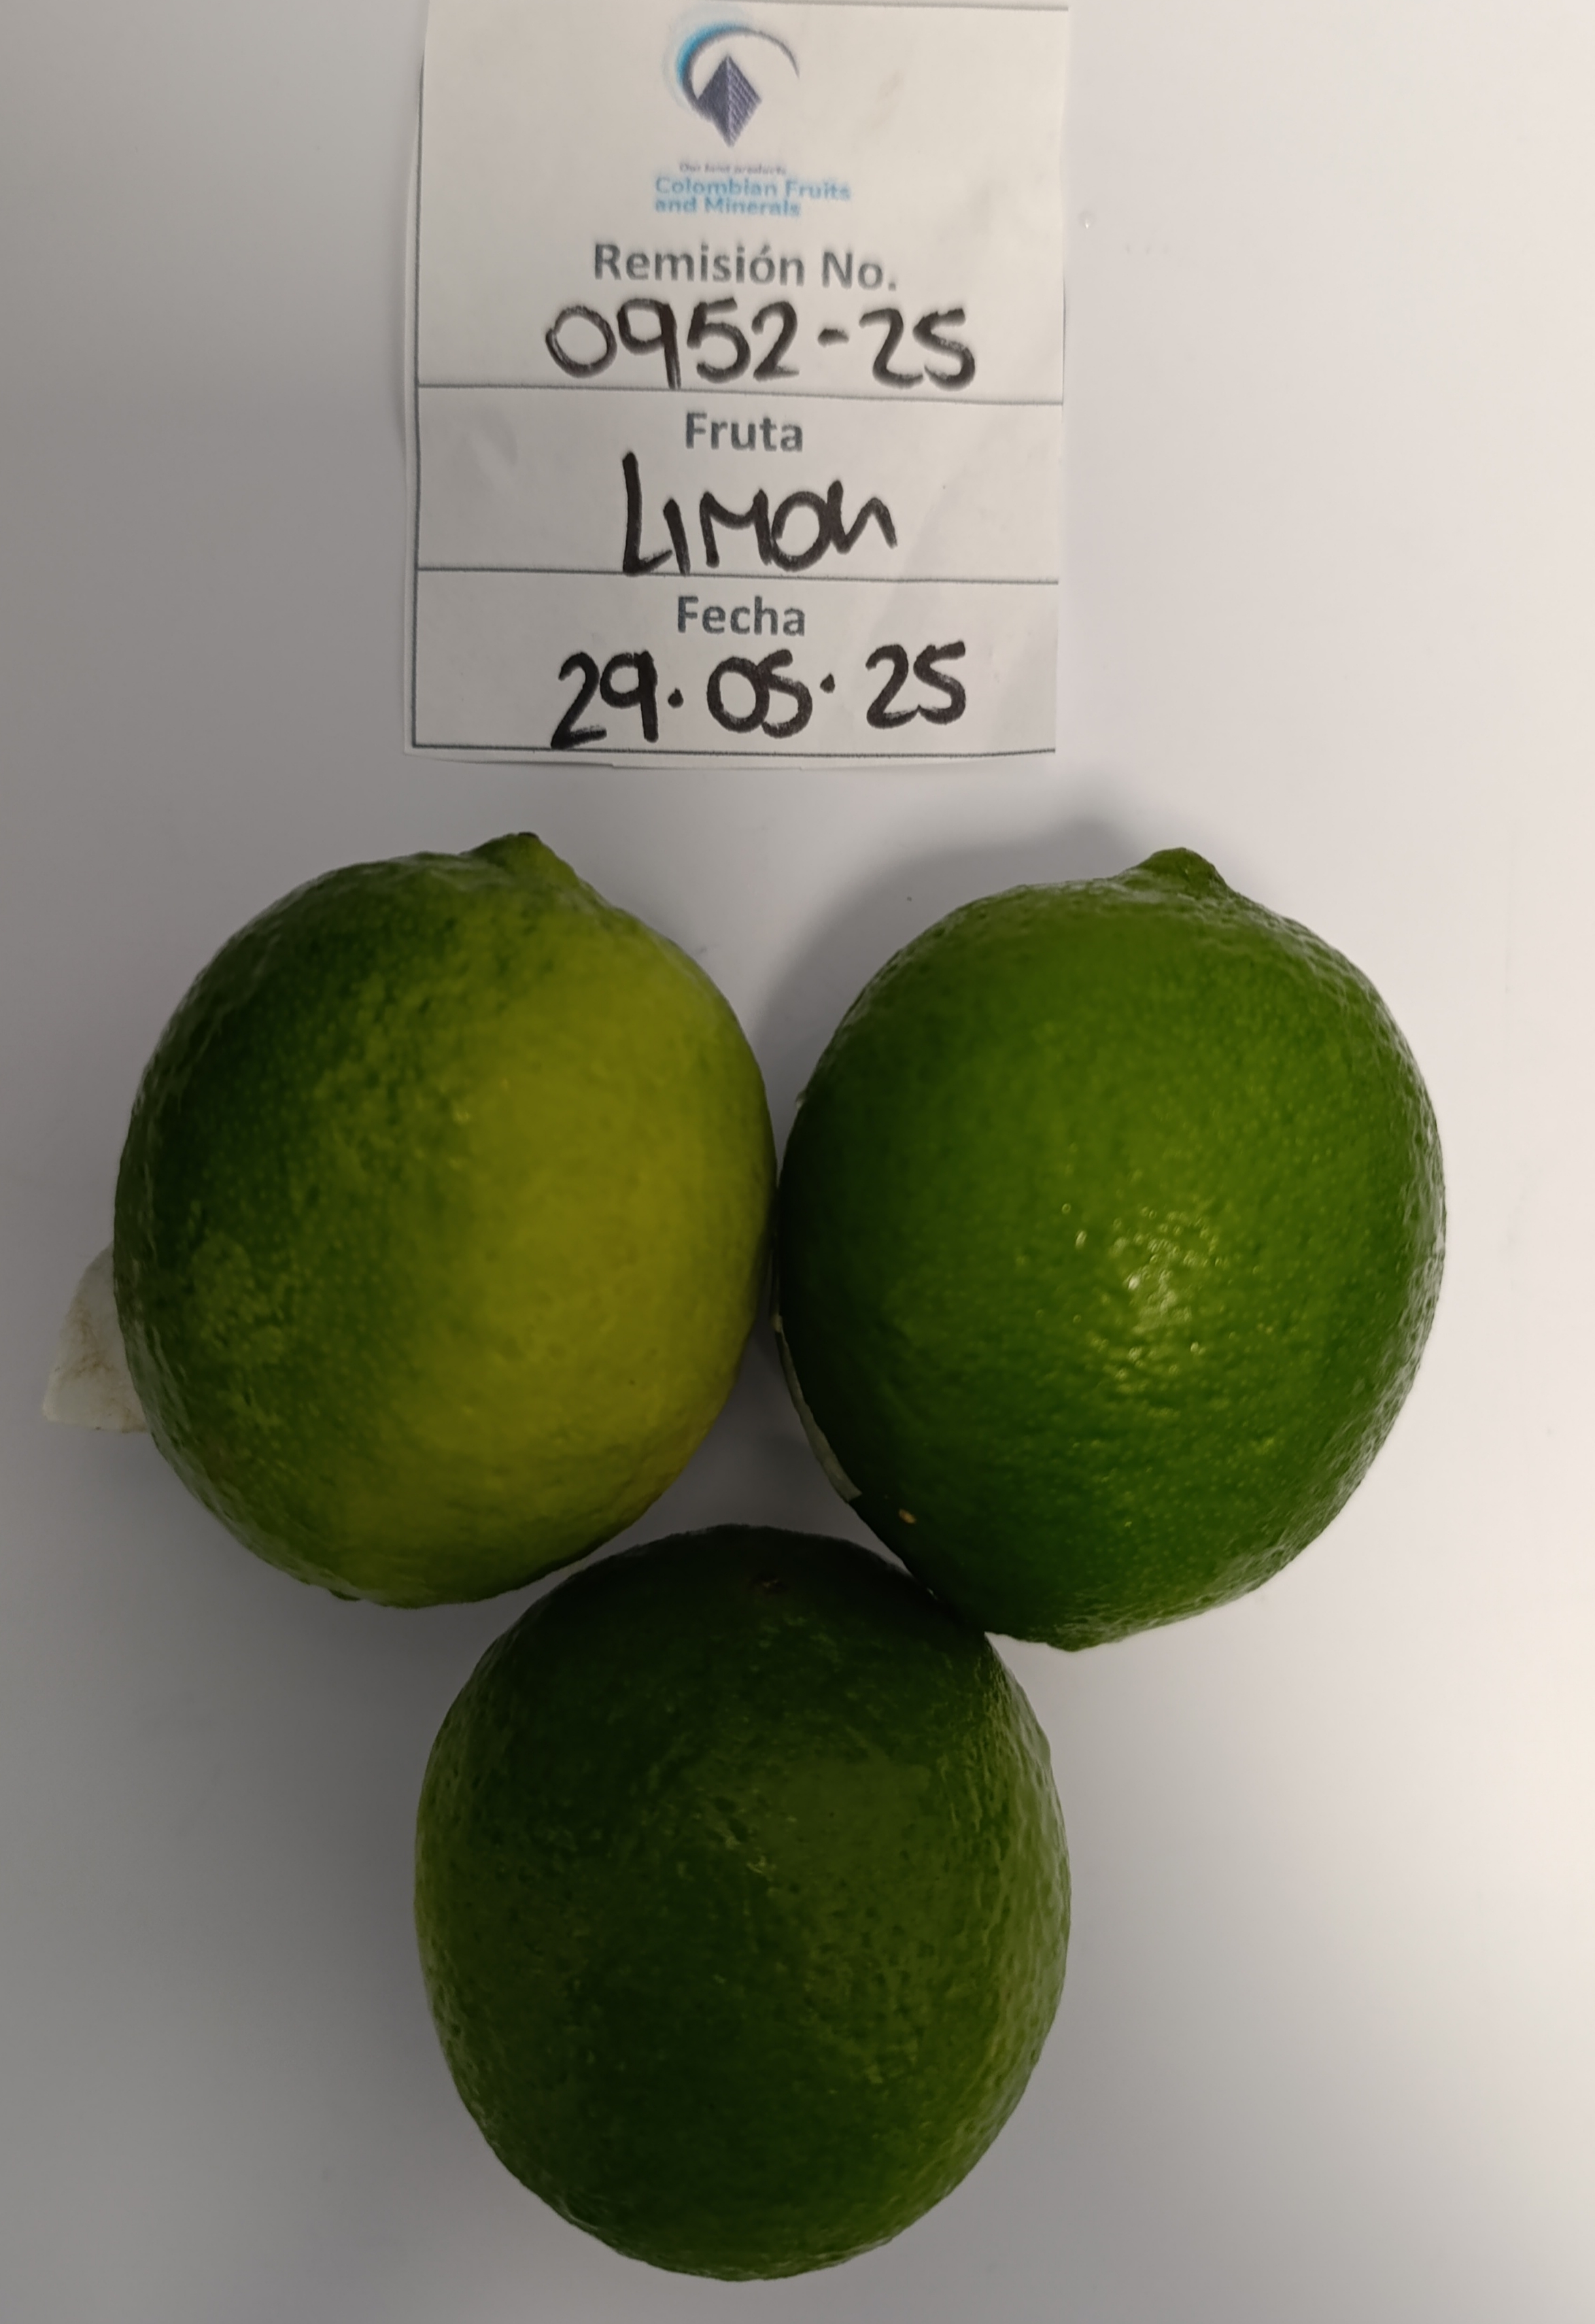 Our best products
Colombian Fruits
and Minerals
Remisión No.
0952-25
Fruta
LIMON
Fecha
29.05.25